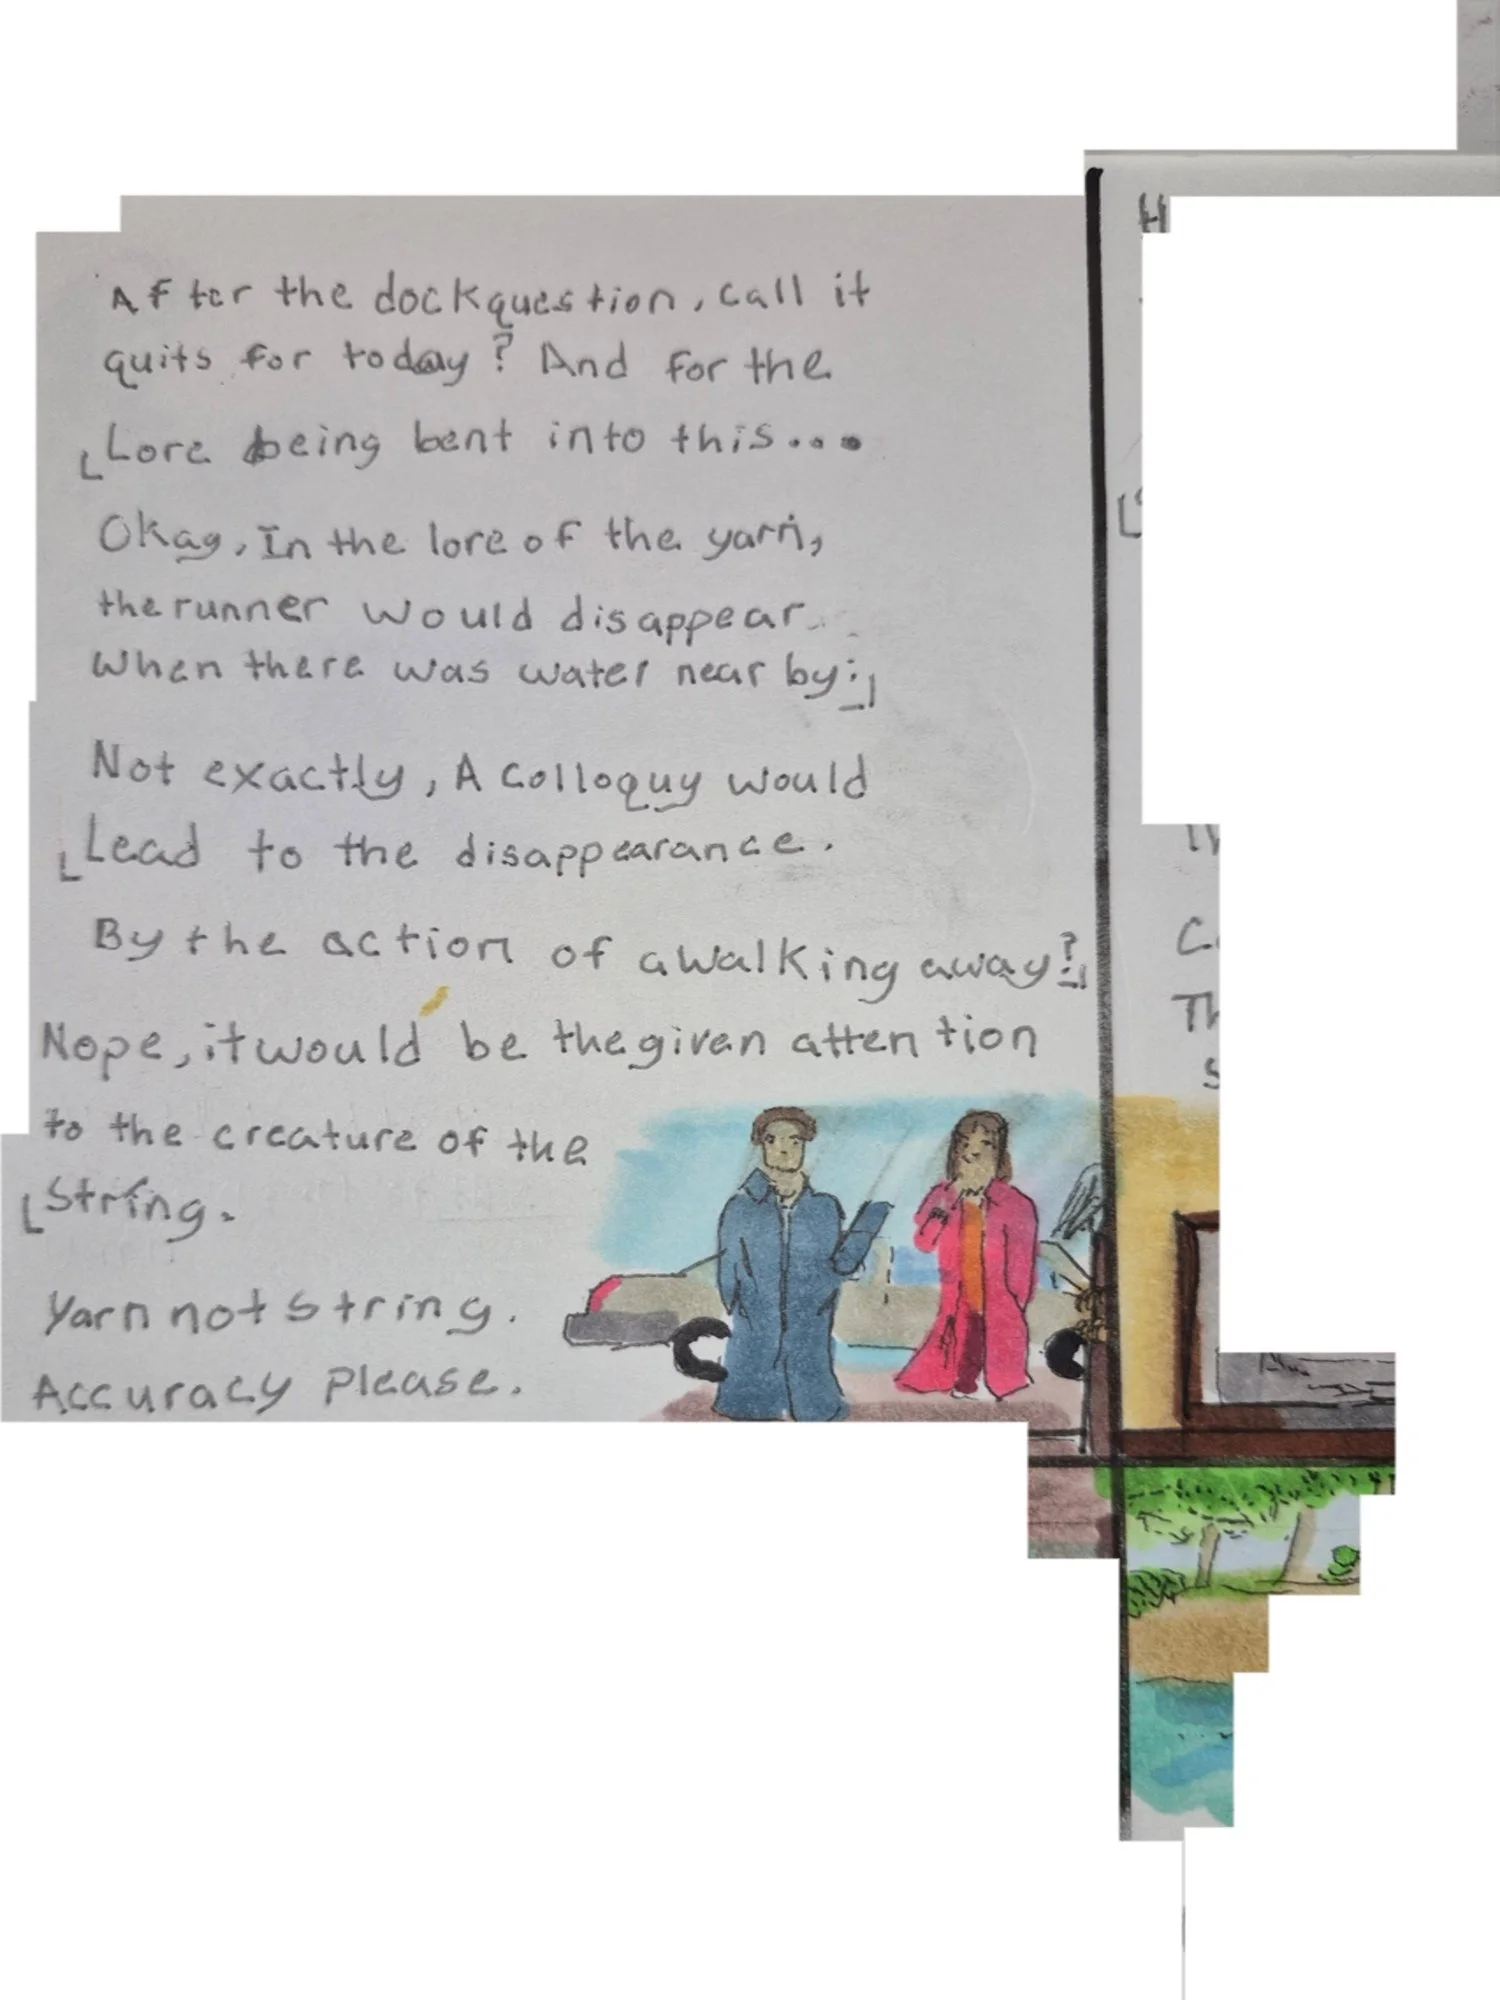 After the dockquestion, call it
quits for today? And for the
Lore being bent into this...
Okay, In the lore of the yarn,
the runner would disappear
when there was water near by.
Not exactly, A colloquy would
Lead to the disappearance.
By the action of a walking away?
Nope, it would be the given attention
to the creature of the
String.
Yarn not string.
Accuracy please.